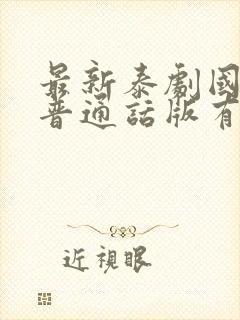 最新泰劇國
普通話版有
近視眼